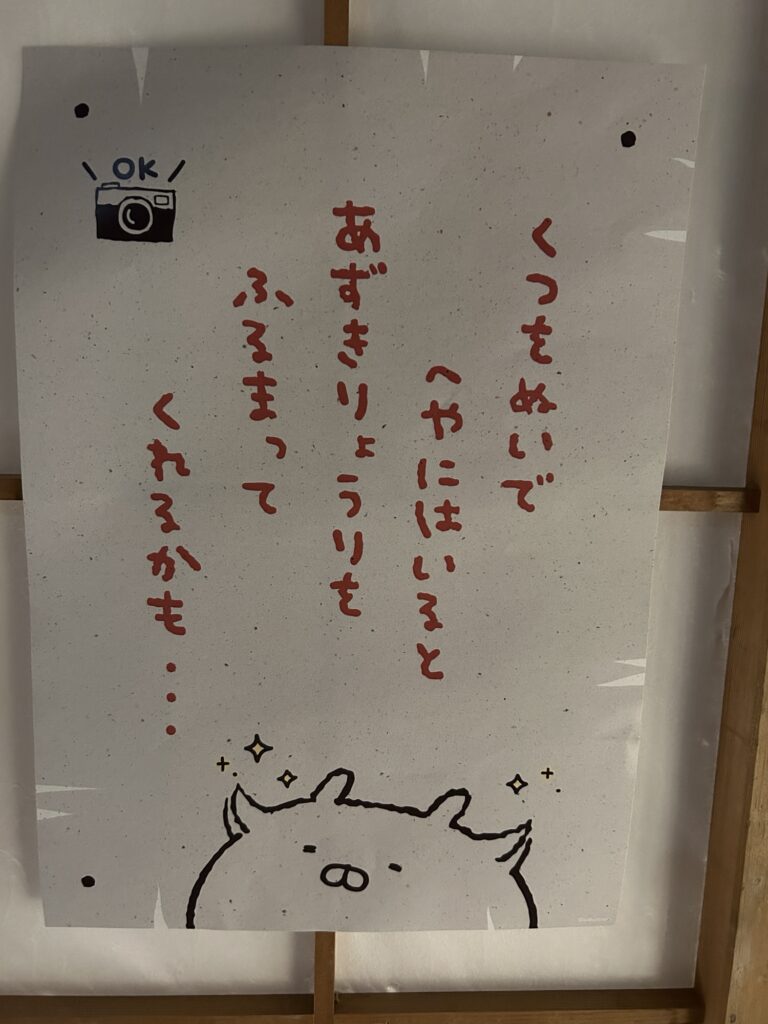 くつをぬいで
へやにはいると
あずきりょうりを
ふるまって
くれるかも・・・
OK